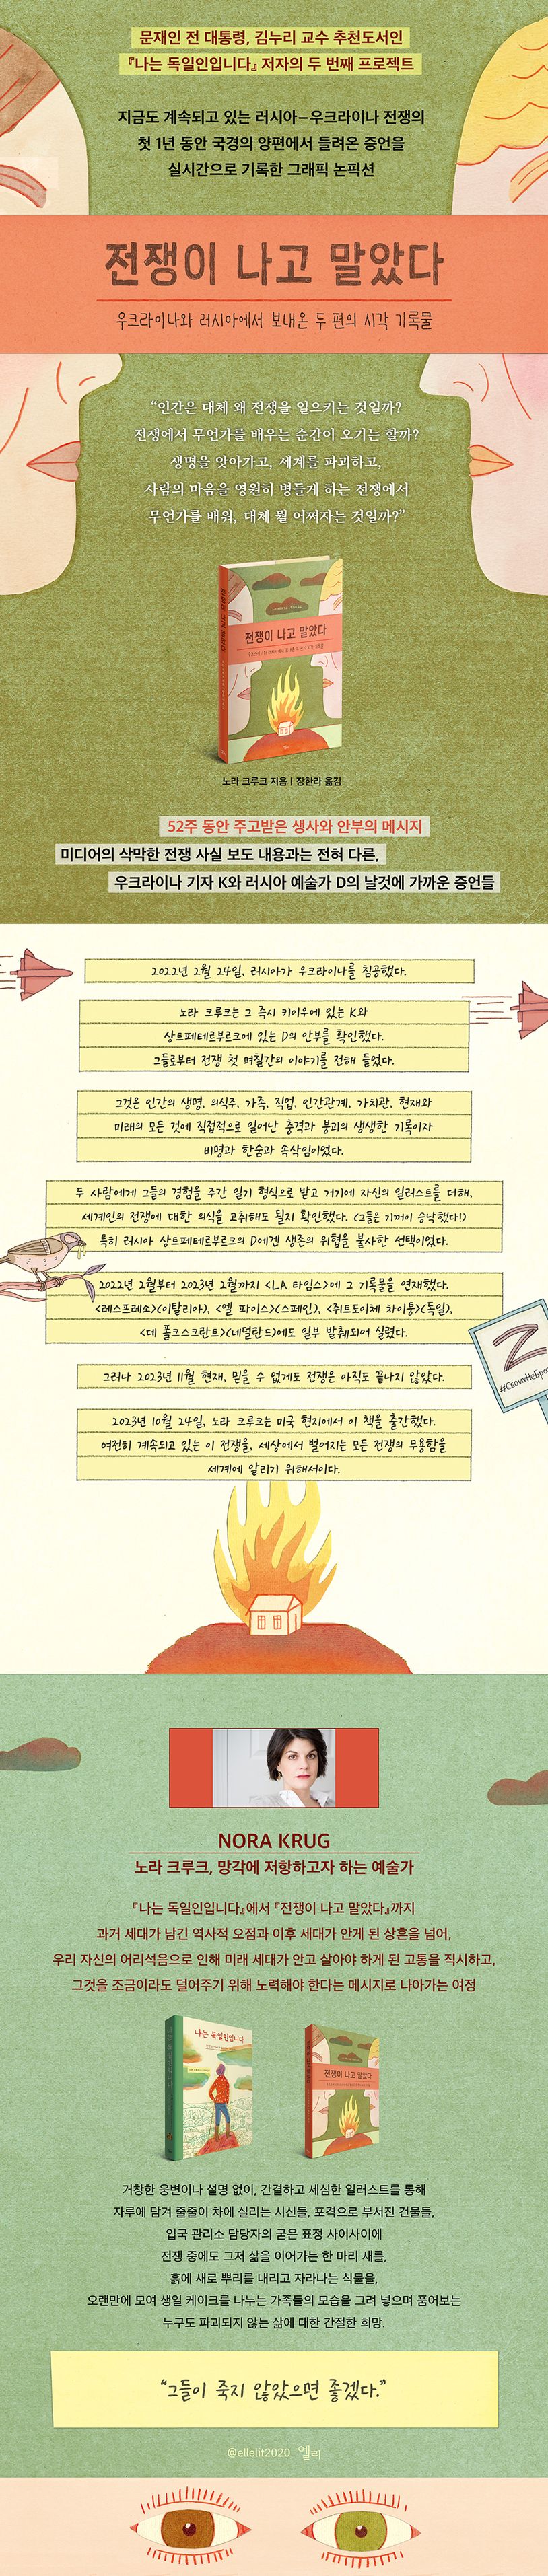 문재인 전 대통령, 김누리 교수 추천도서인
『나는 독일인입니다』 저자의 두 번째 프로젝트
지금도 계속되고 있는 러시아–우크라이나 전쟁의
첫 1년 동안 국경의 양편에서 들려온 증언을
실시간으로 기록한 그래픽 논픽션
전쟁이 나고 말았다
우크라이나와 러시아에서 보내온 두 편의 시각 기록물
“인간은 대체 왜 전쟁을 일으키는 것일까?
전쟁에서 무언가를 배우는 순간이 오기는 할까?
생명을 앗아가고, 세계를 파괴하고,
사람의 마음을 영원히 병들게 하는 전쟁에서
무언가를 배워, 대체 뭘 어쩌자는 것일까?”
전쟁이 나고 말았다
전쟁이 나고 말았다
노라 크루크 지음 | 장한라 옮김
52주 동안 주고받은 생사와 안부의 메시지
미디어의 삭막한 전쟁 사실 보도 내용과는 전혀 다른,
우크라이나 기자 K와 러시아 예술가 D의 날것에 가까운 증언들
2022년 2월 24일, 러시아가 우크라이나를 침공했다.
노라 크루크는 그 즉시 키이우에 있는 K와
상트페테르부르크에 있는 D의 안부를 확인했다.
그들로부터 전쟁 첫 며칠간의 이야기를 전해 들었다.
그것은 인간의 생명, 의식주, 가족, 직업, 인간관계, 가치관, 현재와
미래의 모든 것에 직접적으로 일어난 충격과 붕괴의 생생한 기록이자
비명과 한숨과 속삭임이었다.
두 사람에게 그들의 경험을 주간 일기 형식으로 받고 거기에 자신의 일러스트를 더해,
세계인의 전쟁에 대한 의식을 고취해도 될지 확인했다. (그들은 기꺼이 승낙했다!)
특히 러시아 상트페테르부르크의 D에겐 생존의 위협을 불사한 선택이었다.
2022년 2월부터 2023년 2월까지 <LA 타임스>에 그 기록물을 연재했다.
<레스프레소>(이탈리아), <엘 파이스>(스페인), <쥐트도이체 차이퉁>(독일),
<데 폴크스크란트>(네덜란드)에도 일부 발췌되어 실렸다.
Z
그러나 2023년 11월 현재, 믿을 수 없게도 전쟁은 아직도 끝나지 않았다.
2023년 10월 24일, 노라 크루크는 미국 현지에서 이 책을 출간했다.
여전히 계속되고 있는 이 전쟁을, 세상에서 벌어지는 모든 전쟁의 무용함을
세계에 알리기 위해서이다.
NORA KRUG
노라 크루크, 망각에 저항하고자 하는 예술가
『나는 독일인입니다』에서 『전쟁이 나고 말았다』까지
과거 세대가 남긴 역사적 오점과 이후 세대가 안게 된 상흔을 넘어,
우리 자신의 어리석음으로 인해 미래 세대가 안고 살아야 하게 된 고통을 직시하고,
그것을 조금이라도 덜어주기 위해 노력해야 한다는 메시지로 나아가는 여정
나는 독일인입니다
나는 독일인입니다
전쟁이 나고 말았다
거창한 웅변이나 설명 없이, 간결하고 세심한 일러스트를 통해
자루에 담겨 줄줄이 차에 실리는 시신들, 포격으로 부서진 건물들,
입국 관리소 담당자의 굳은 표정 사이사이에
전쟁 중에도 그저 삶을 이어가는 한 마리 새를,
흙에 새로 뿌리를 내리고 자라나는 식물을,
오랜만에 모여 생일 케이크를 나누는 가족들의 모습을 그려 넣으며 품어보는
누구도 파괴되지 않는 삶에 대한 간절한 희망.
“그들이 죽지 않았으면 좋겠다.”
@ellelit2020 엘리